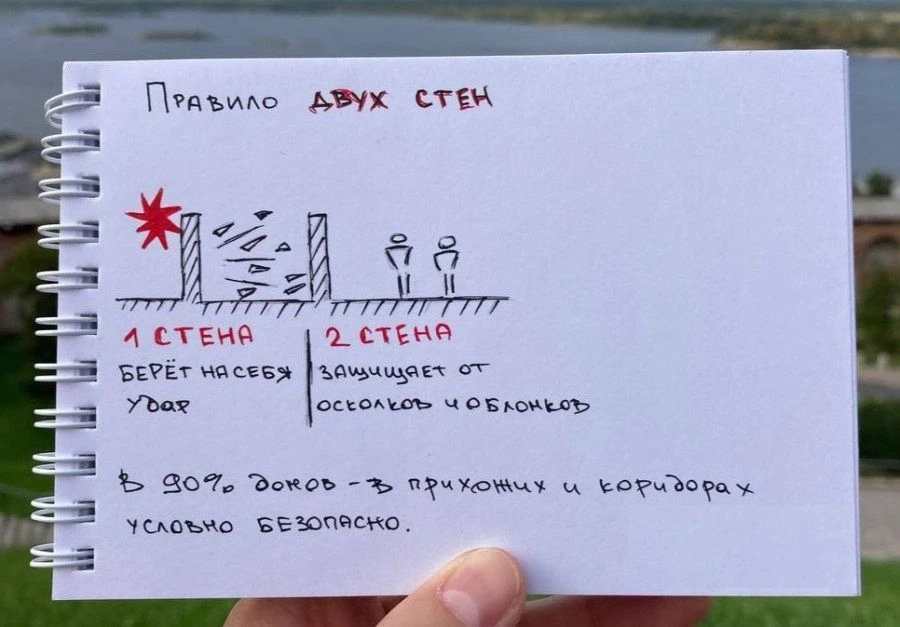 Правило ДВУХ СТЕН
1 СТЕНА
БЕРЁТ НА СЕБЯ
УДАР
2 СТЕНА
ЗАЩИЩАЕТ ОТ
ОСКОЛКОВ И ОБЛОМКОВ
В 90% домов - в прихожих и коридорах
условно БЕЗОПАСНО.